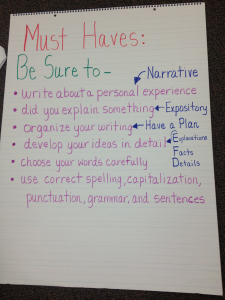 Must Haves:
Be Sure to -
Narrative
• write about a personal experience
• did you explain something ← Expository
• organize your writing ← Have a Plan
• develop your ideas in detail ← Explanations
Facts
• choose your words carefully Details
• use correct spelling, capitalization,
punctuation, grammar, and sentences